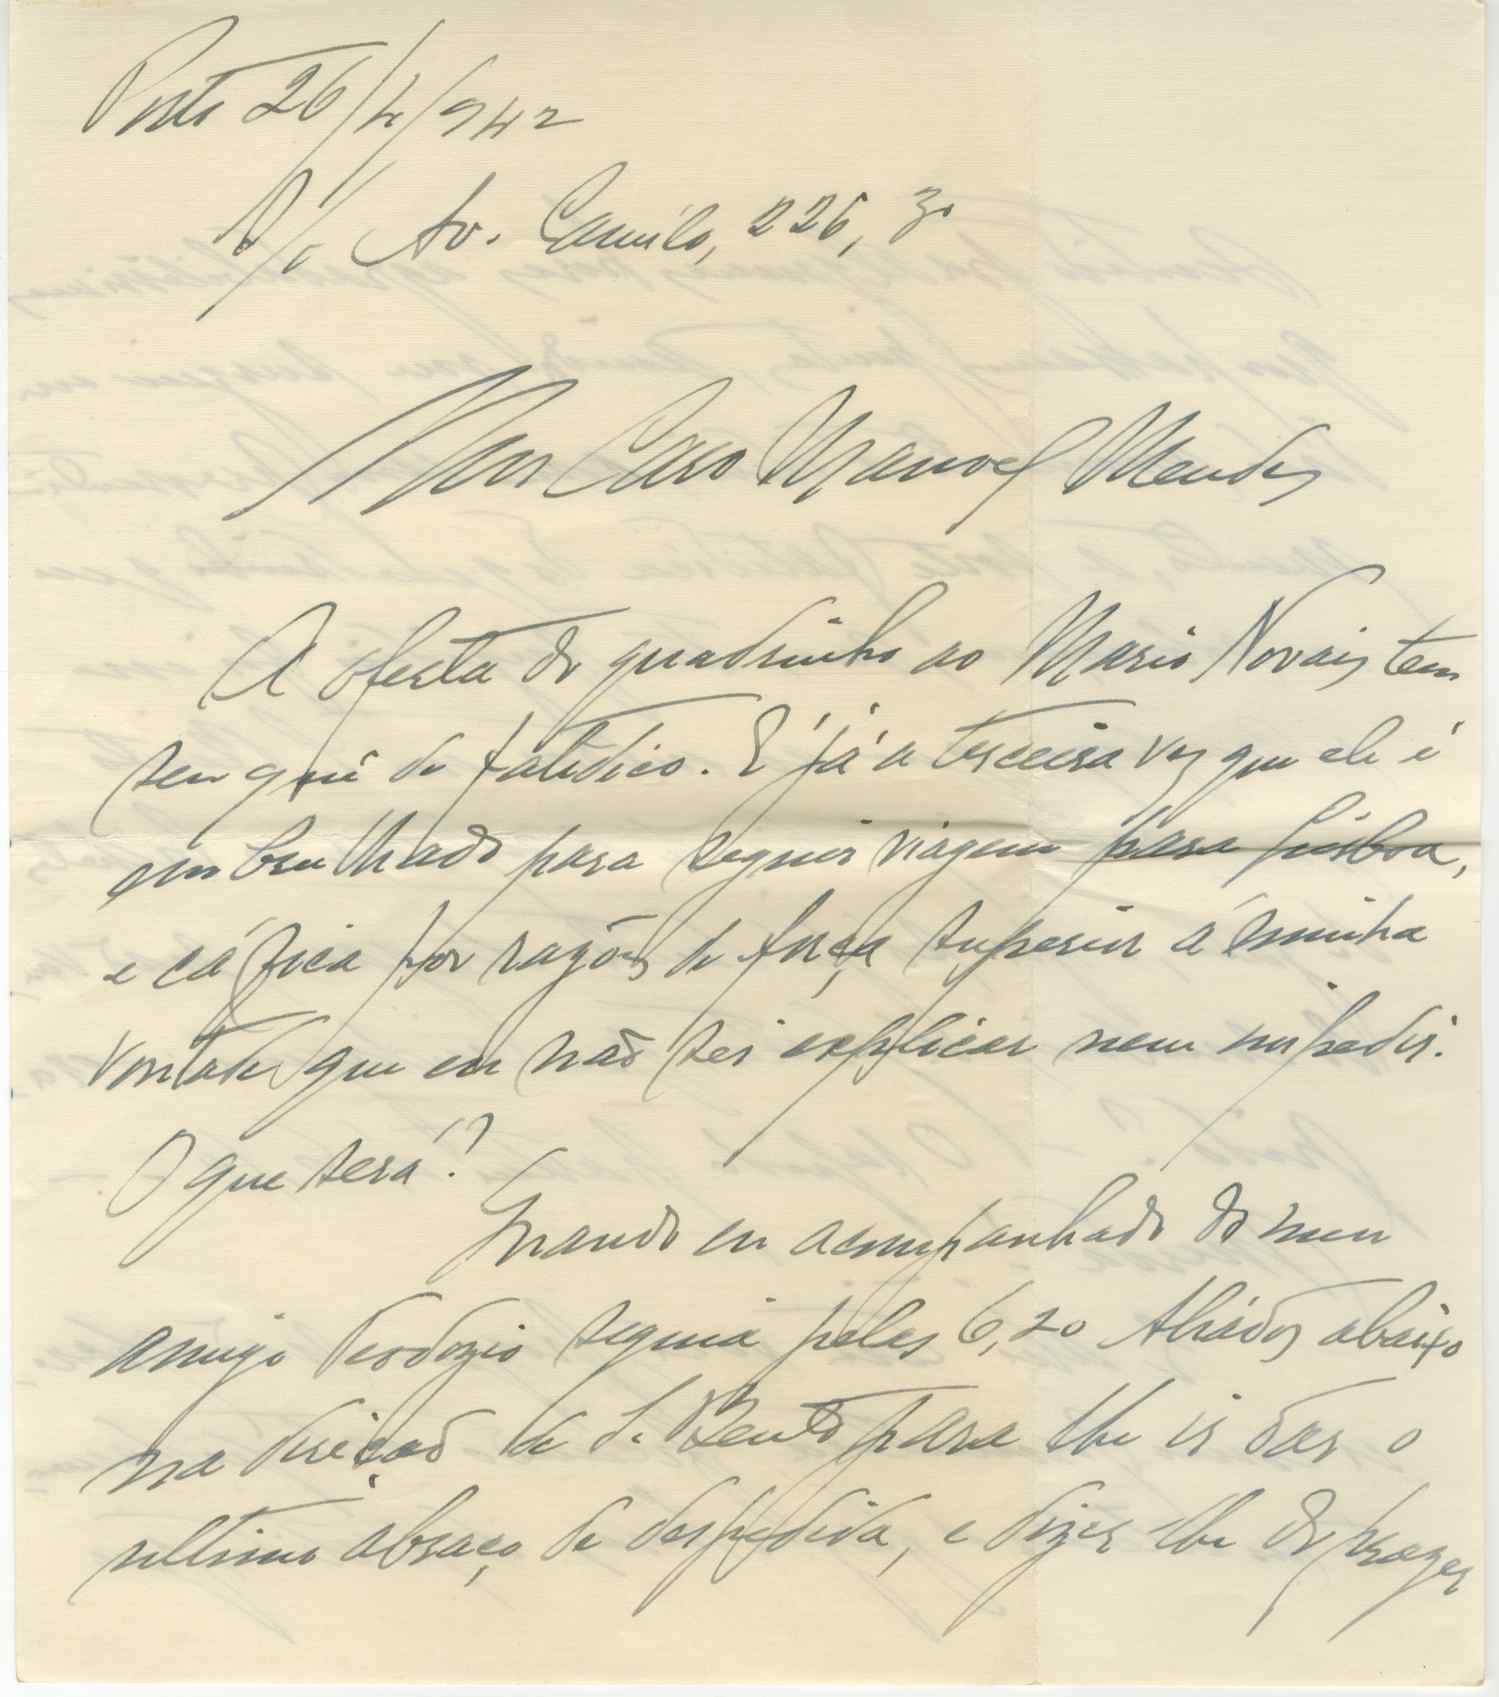 Porto 26/4/942
S/c Av. Camilo, 226, 3º
Meu Caro Manoel Mendes
A oferta do quadrinho ao Mario Novais tem
seu quê de fatidico. E' já a terceira vez que ele é
embrulhado para seguir viagem para Lisboa,
e cá fica por razões de força superior á minha
vontade, que eu não sei explicar nem impedir.
O que será?
Quando eu acompanhado do meu
amigo Teodozio seguia pelas 6,20 Aliados abaixo
na direcção de S. Bento para lhe ir dar o
ultimo abraço, de despedida, e dizer lhe do prazer